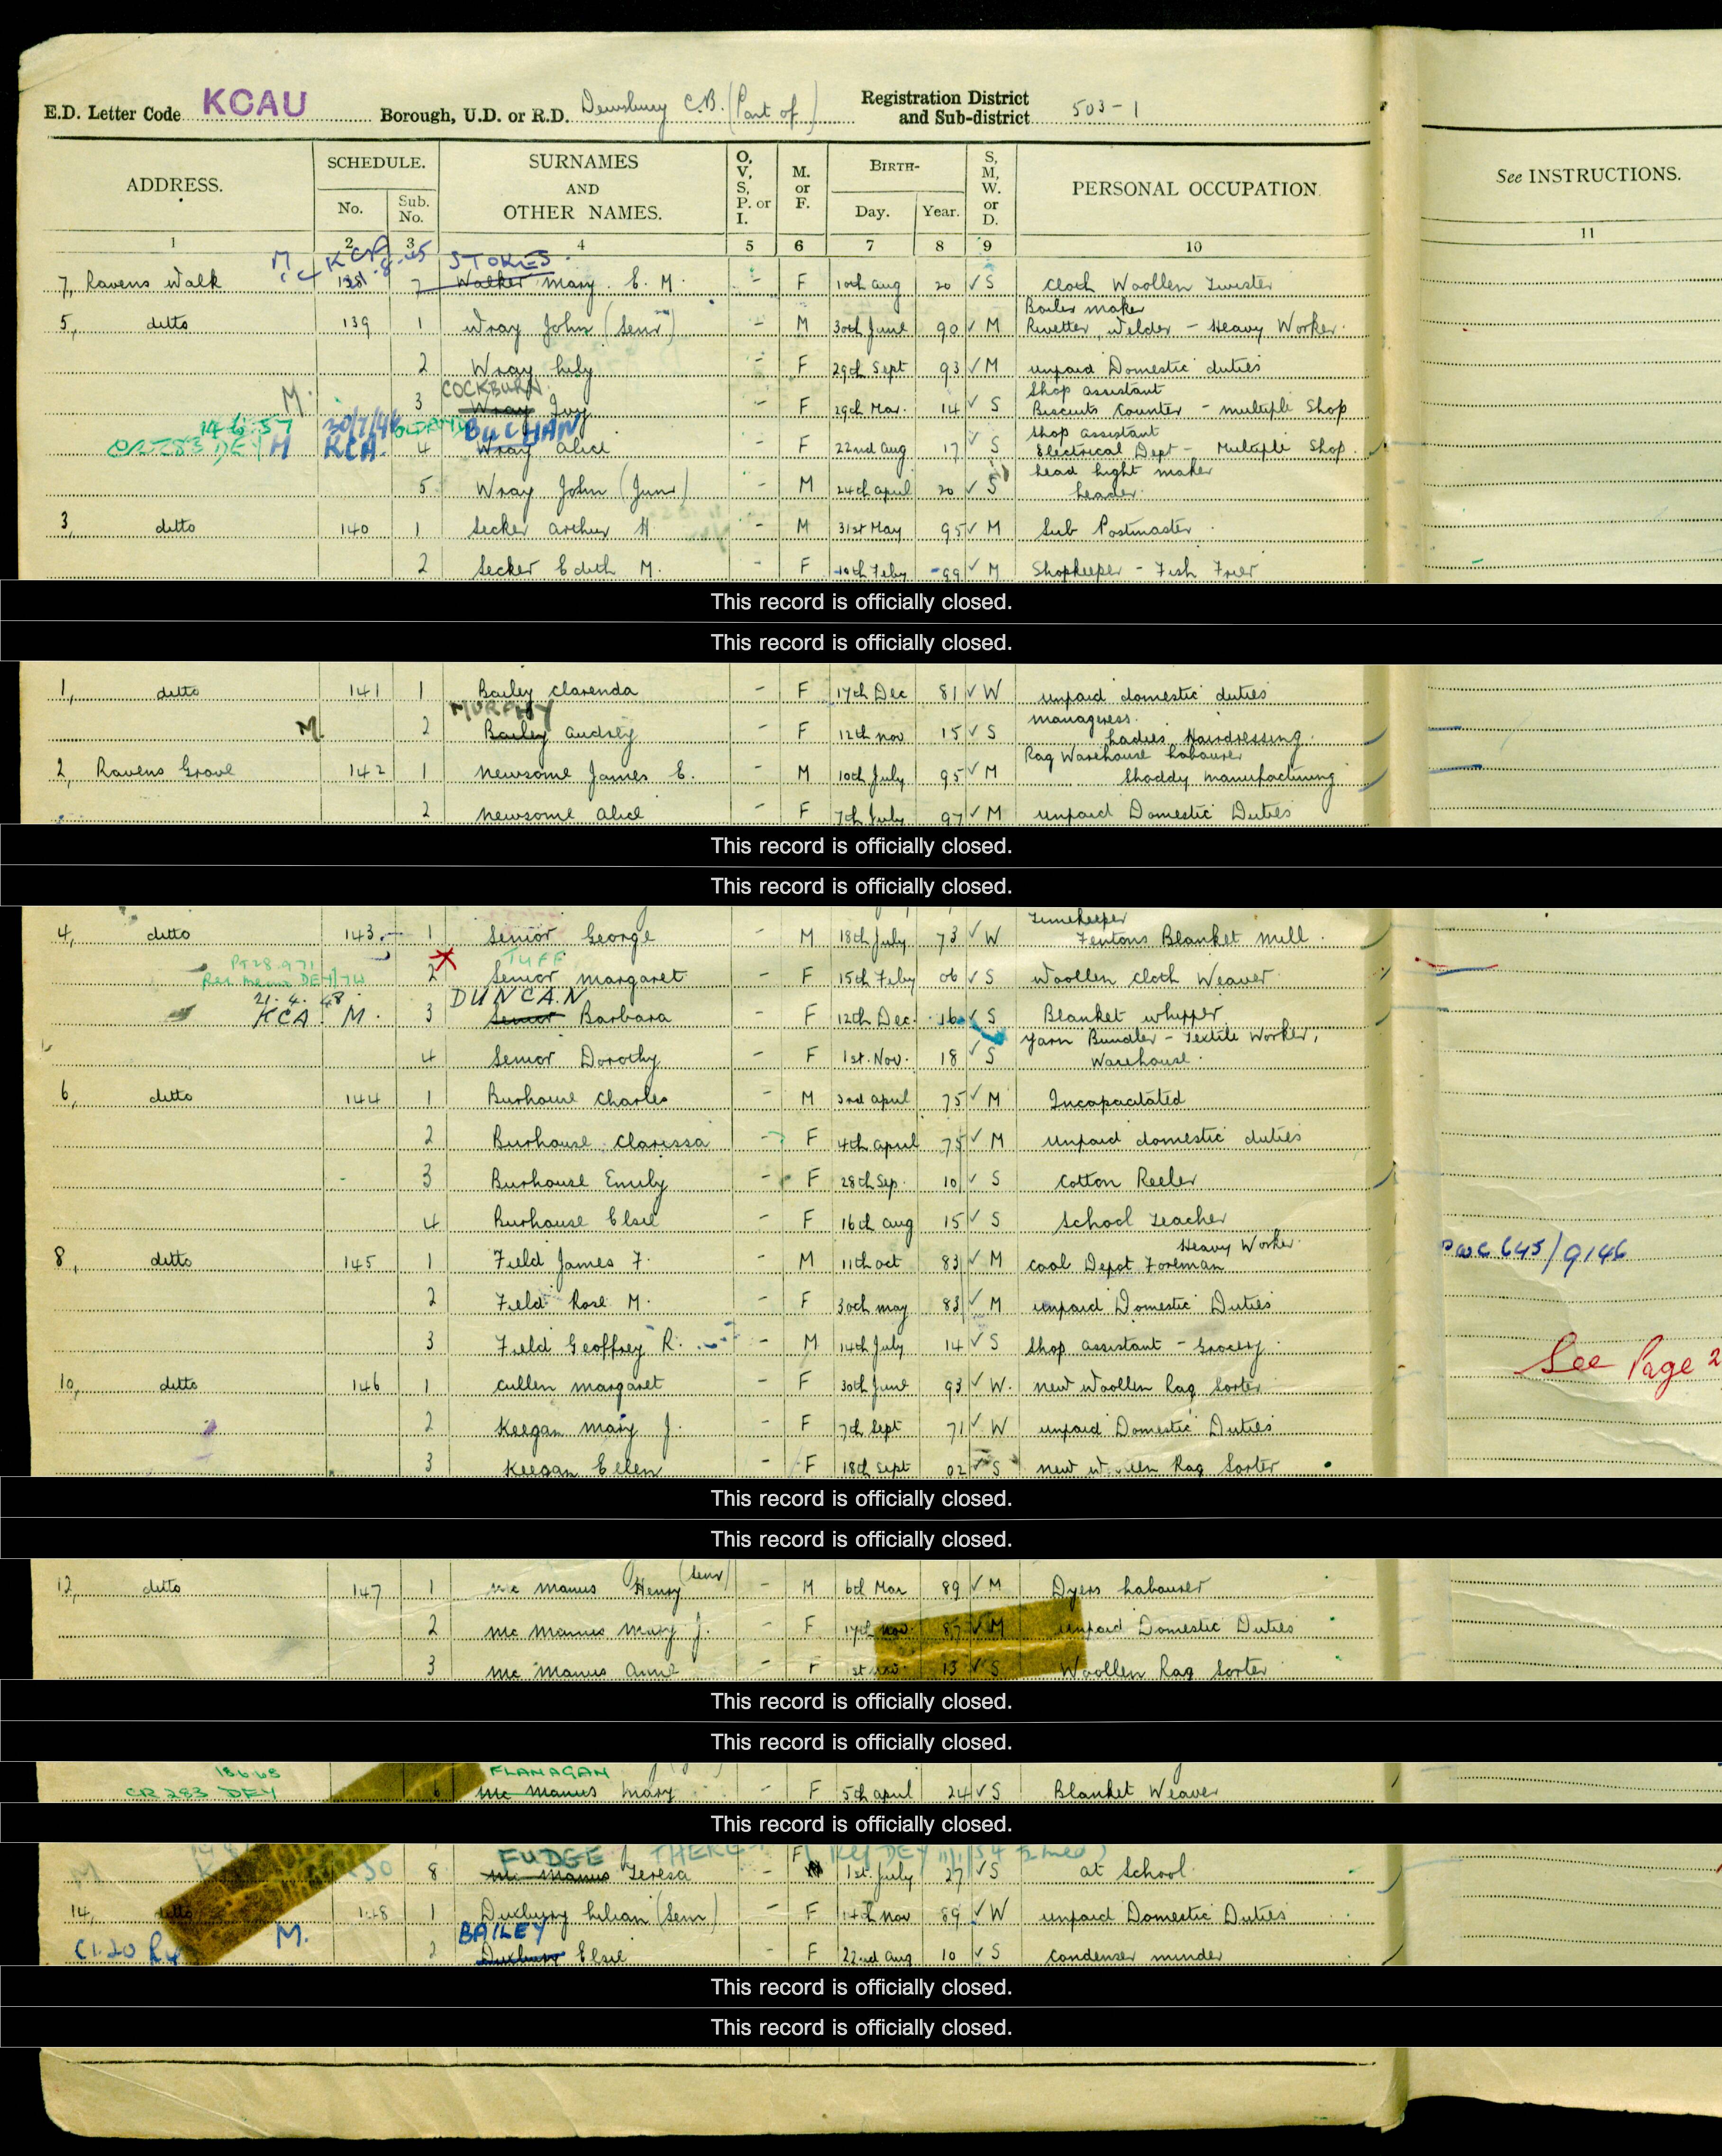 E.D. Letter Code KCAU Borough, U.D. or R.D. Dewsbury C.B. (Part of) Registration District and Sub-district 503-1
ADDRESS. SCHEDULE. No. Sub. No. SURNAMES AND OTHER NAMES. O, V, S, P. or I. M. or F. BIRTH- Day. Year. S, M, W. or D. PERSONAL OCCUPATION. See INSTRUCTIONS.
1 2 3 4 5 6 7 8 9 10 11
M STOKES
7, Ravens Walk 138 7 Walker Mary. E. M. - F 10th Aug 20 ✓ S Cloth Woollen Twister
Boiler maker
5, ditto 139 1 Wray John (Senr) - M 30th June 90 ✓ M Rivetter, Welder - Heavy Worker.
2 Wray Lily - F 29th Sept 93 ✓ M unpaid Domestic duties
COCKBURN Shop assistant
M. 3 Wray Ivy - F 29th Mar. 14 ✓ S Biscuits Counter - multiple Shop
14.6.57 30/7/46 BUCHAN Shop assistant
CR283 DEY M KCA. 4 Wray Alice - F 22nd Aug 17 ✓ S Electrical Dept - Multiple Shop.
head light maker
5 Wray John (Junr) - M 24th April 20 ✓ S leader.
3, ditto 140 1 Secker Arthur H - M 31st May 95 ✓ M Sub Postmaster
2 Secker Edith M. - F 10th Feby 99 ✓ M Shopkeeper - Fish Frier
This record is officially closed.
This record is officially closed.
1, ditto 141 1 Bailey Clarenda - F 17th Dec 81 ✓ W unpaid domestic duties
MURPHY manageress.
M. 2 Bailey Audrey - F 12th Nov 15 ✓ S Ladies Hairdressing.
Rag Warehouse Labourer
2, Ravens Grove 142 1 Newsome James E. - M 10th July 95 ✓ M Shoddy manufacturing
2 Newsome Alice - F 7th July 97 ✓ M unpaid Domestic Duties
This record is officially closed.
This record is officially closed.
Timekeeper
4, ditto 143 1 Senior George - M 18th July 73 ✓ W Fentons Blanket Mill.
TUFF
2 Senior Margaret - F 15th Feby 06 ✓ S Woollen Cloth Weaver
21.4.48 DUNCAN
KCA. M. 3 Senior Barbara - F 12th Dec. 16 ✓ S Blanket whipper
Yarn Bundler - Textile Worker,
4 Senior Dorothy - F 1st. Nov. 18 ✓ S Warehouse.
6, ditto 144 1 Burhouse Charles - M 3rd April 75 ✓ M Incapacitated
2 Burhouse Clarissa - F 4th April 75 ✓ M unpaid domestic duties
3 Burhouse Emily - F 28th Sep. 10 ✓ S Cotton Reeler
4 Burhouse Elsie - F 16th Aug 15 ✓ S School Teacher
Heavy Worker.
8, ditto 145 1 Field James F. - M 11th Oct 83 ✓ M Coal Depot Foreman 645/9146
2 Field Rose M. - F 30th May 83 ✓ M unpaid Domestic Duties
3 Field Geoffrey R. - M 14th July 14 ✓ S Shop assistant - Grocery. See Page 2
10, ditto 146 1 Cullen Margaret - F 30th June 93 ✓ W. new Woollen Rag Sorter
2 Keegan Mary J. - F 7th Sept 71 ✓ W unpaid Domestic Duties
3 Keegan Ellen - F 18th Sept 02 ✓ S new Woollen Rag Sorter
This record is officially closed.
This record is officially closed.
12, ditto 147 1 Mc Manus Henry (Senr) - M 6th Mar 89 ✓ M Dyers Labourer
2 Mc Manus Mary J. - F 17th Nov. 87 ✓ M unpaid Domestic Duties
3 Mc Manus Ann - F 1st Nov. 13 ✓ S Woollen Rag Sorter
This record is officially closed.
This record is officially closed.
FLANAGAN
CR 283 DEY 6 Mc Manus Mary - F 5th April 24 ✓ S Blanket Weaver
This record is officially closed.
FUDGE F
M 8 Mc Manus Teresa - M 1st July 27 ✓ S at School
14, ditto 148 1 Duxbury Lilian (Senr) - F 14th Nov 89 ✓ W unpaid Domestic Duties
BAILEY
M. 2 Duxbury Elsie - F 22nd Aug 10 ✓ S Condenser minder
This record is officially closed.
This record is officially closed.